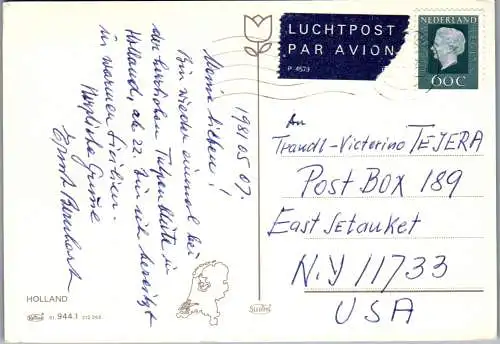 1981.05.07.
Meine Lieben!
Bin wieder einmal bei
der herrlichen Tulpenblüte in
Holland, ab 22. bin ich bereits
in warmen Sizilien.
Herzliche Grüsse
Ernst Bernhart
HOLLAND
51.944.1 212 265
LUCHTPOST
PAR AVION
P 4573
NEDERLAND
60c
An
Traudl-Victorino TEJERA
POST BOX 189
East Setauket
N.Y 11733
USA